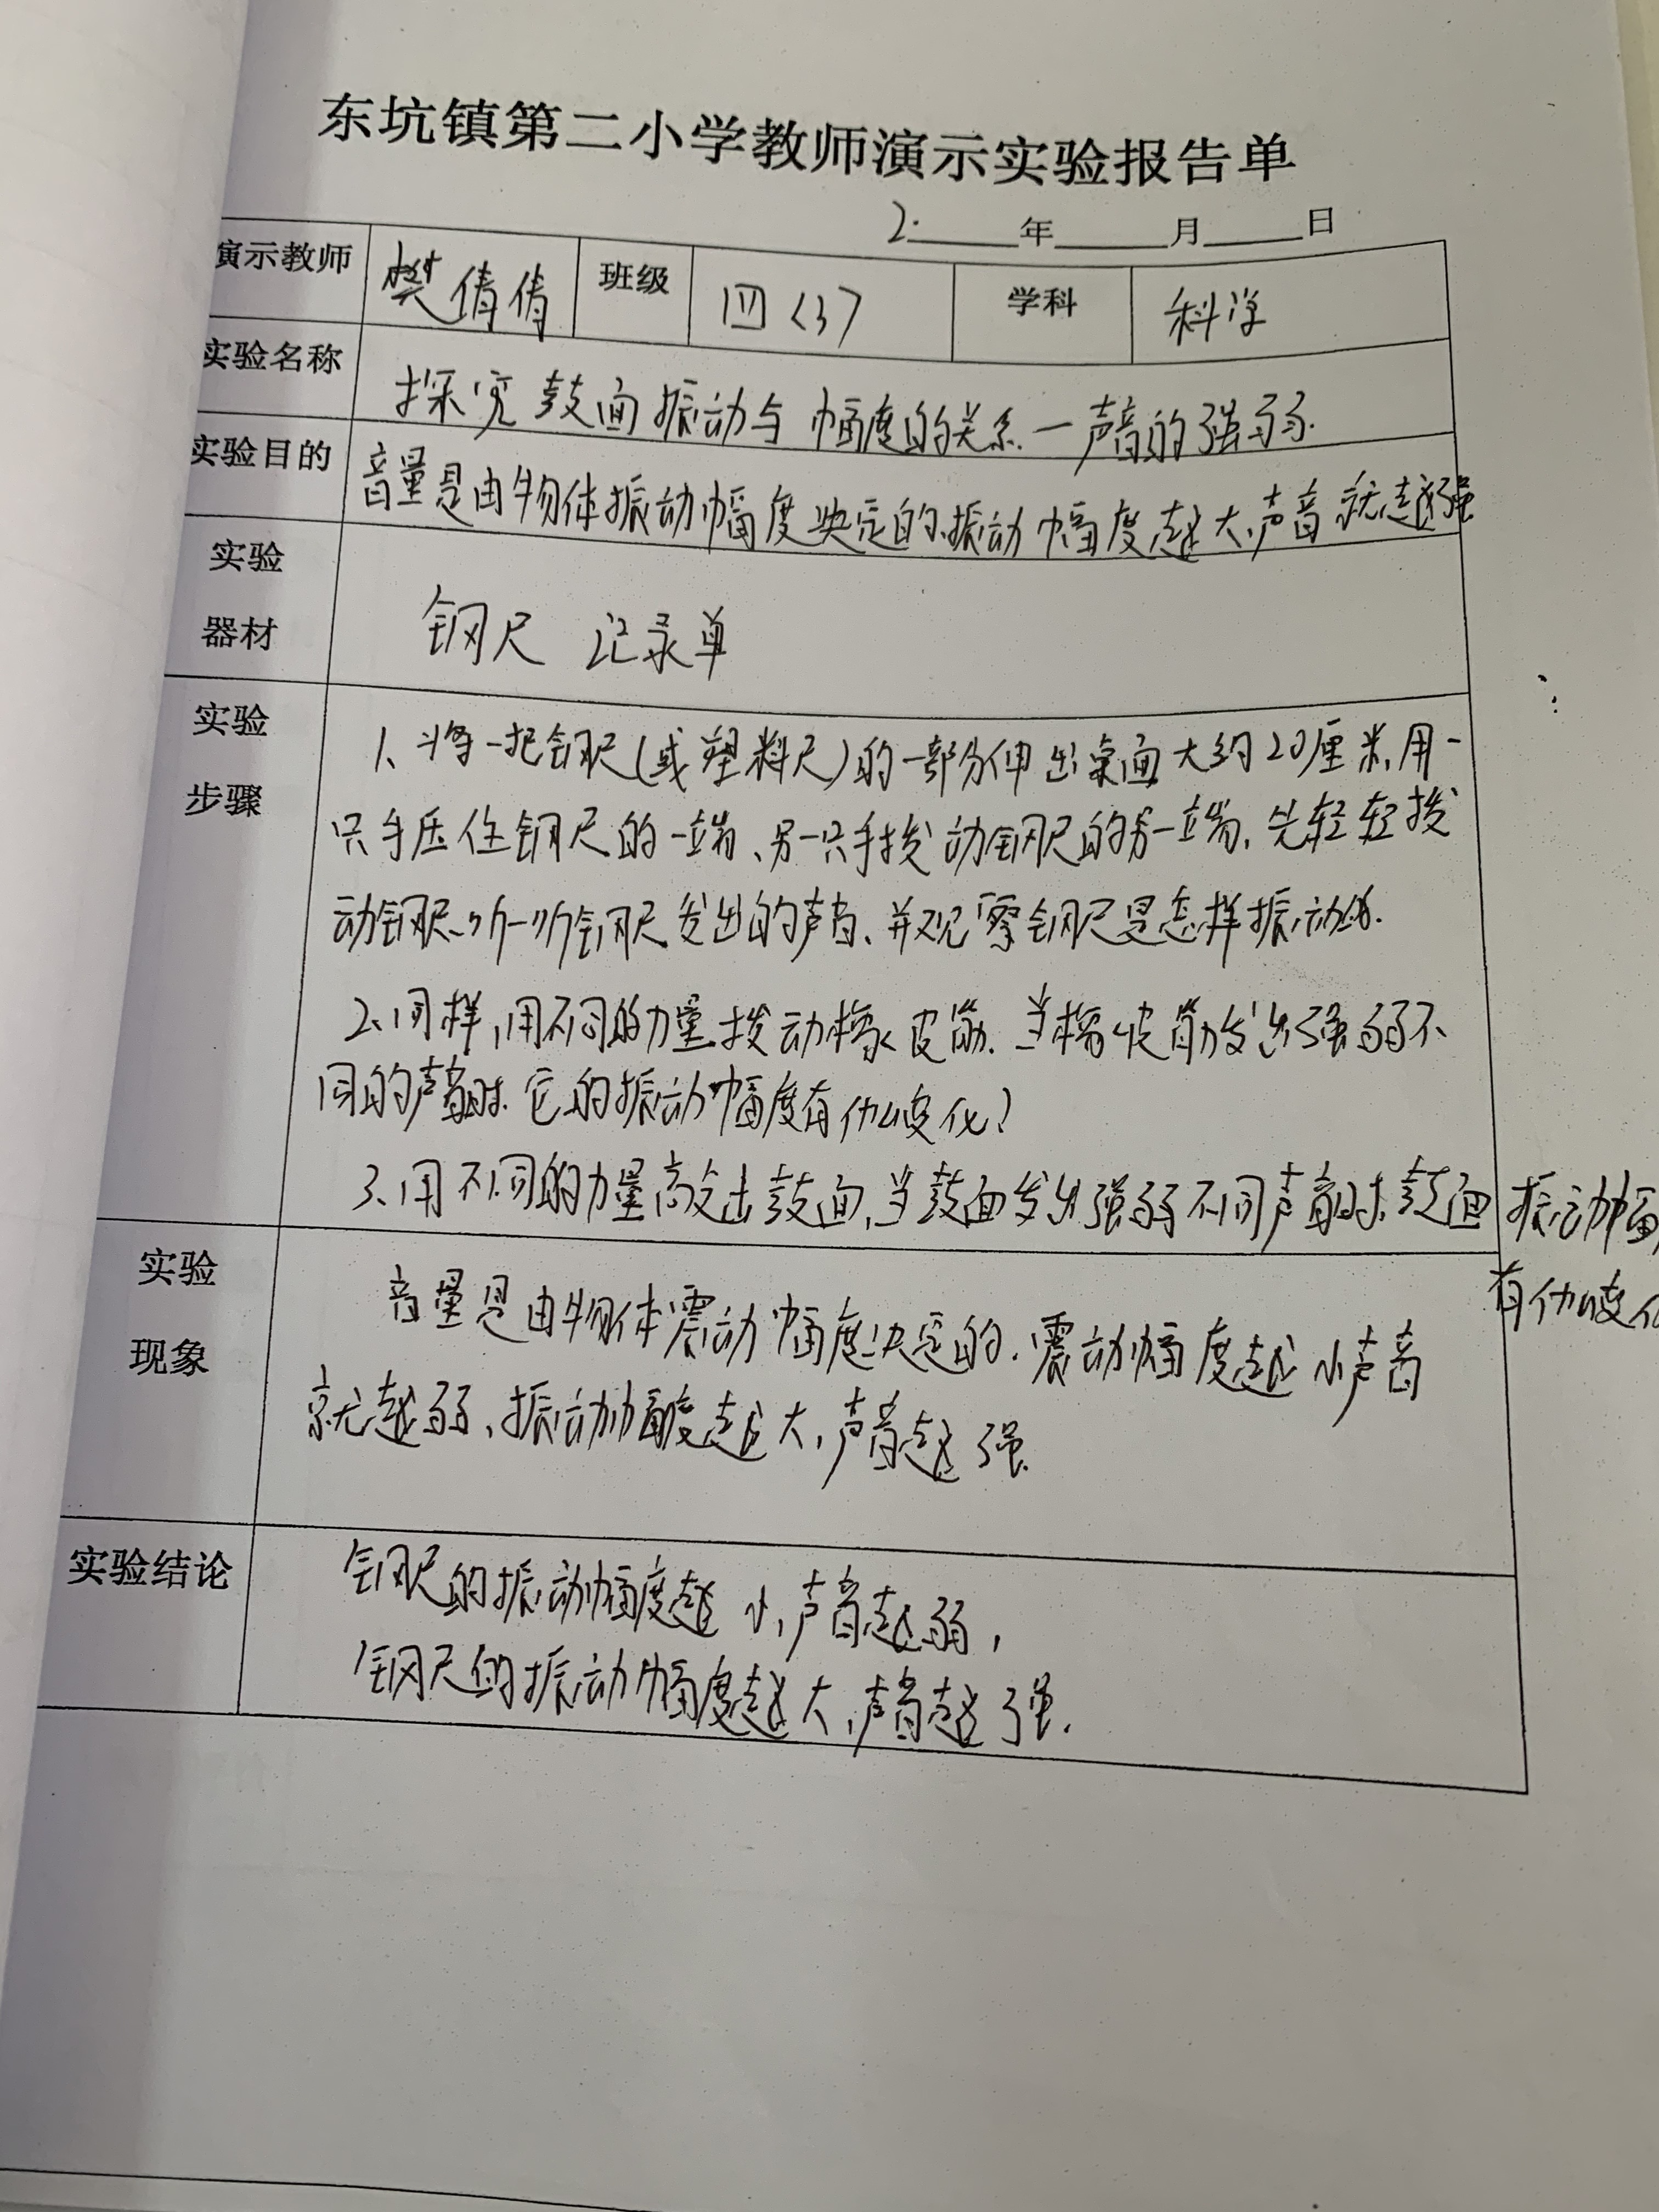 东坑镇第二小学教师演示实验报告单
2. 年 月 日
演示教师 樊倩倩 班级 四<3> 学科 科学
实验名称 探究鼓面振动与幅度的关系一声音的强弱.
实验目的 音量是由物体振动幅度决定的、振动幅度越大,声音就越强
实验
器材
钢尺 记录单
实验
步骤
1、将一把钢尺(或塑料尺)的一部分伸出桌面大约20厘米,用一
只手压住钢尺的一端、另一只手拨动钢尺的另一端,先轻轻拨
动钢尺、听一听钢尺发出的声音、并观察钢尺是怎样振动的.
2、同样,用不同的力量拨动橡皮筋.当橡皮筋发出强弱不
同的声音时.它的振动幅度有什么变化?
3、用不同的力量敲击鼓面,当鼓面发出强弱不同声音时,鼓面振动幅
有什么变化
实验
现象
音量是由物体震动幅度决定的.震动幅度越小声音
就越弱、振动幅度越大,声音越强.
实验结论
钢尺的振动幅度越小,声音越弱,
钢尺的振动幅度越大,声音越强.